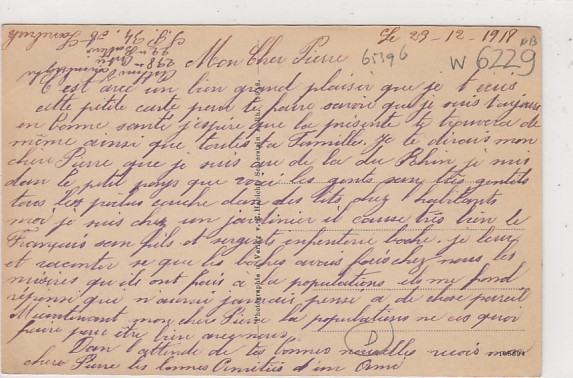 Le 29-12-1918
Mon Cher Pierre
65796
W 6229
C'est avec un bien grand plaisir que je t'ecris
cette petite carte pour te faire savoir que je suis toujours
en bonne santé j'espère que la présente te trouvera de
même ainsi que toute ta Famille, je te dirais mon
cher Pierre que je suis au de la du Rhin, je suis
dans le petit pays que voici les gents sont très gentils
tous les poilus couche dans des lits chez l'habitants
moi je suis chez un jardinier il cause très bien le
Français son fils et sergent infenterie boche. je leur
et raconter se que les boches avous fais chez nous, les
misères qu'ils ont fais à la populations ils me fond
réponse que n'aurai jamais pensé a de chose pareil
Maintenant mon cher Pierre la populations ne sais quoi
faire pour être bien avec nous.
Dan l'attende de tes bonnes nouvelles reçois mon
cher Pierre les bonnes Amitiées d'un Ami
D